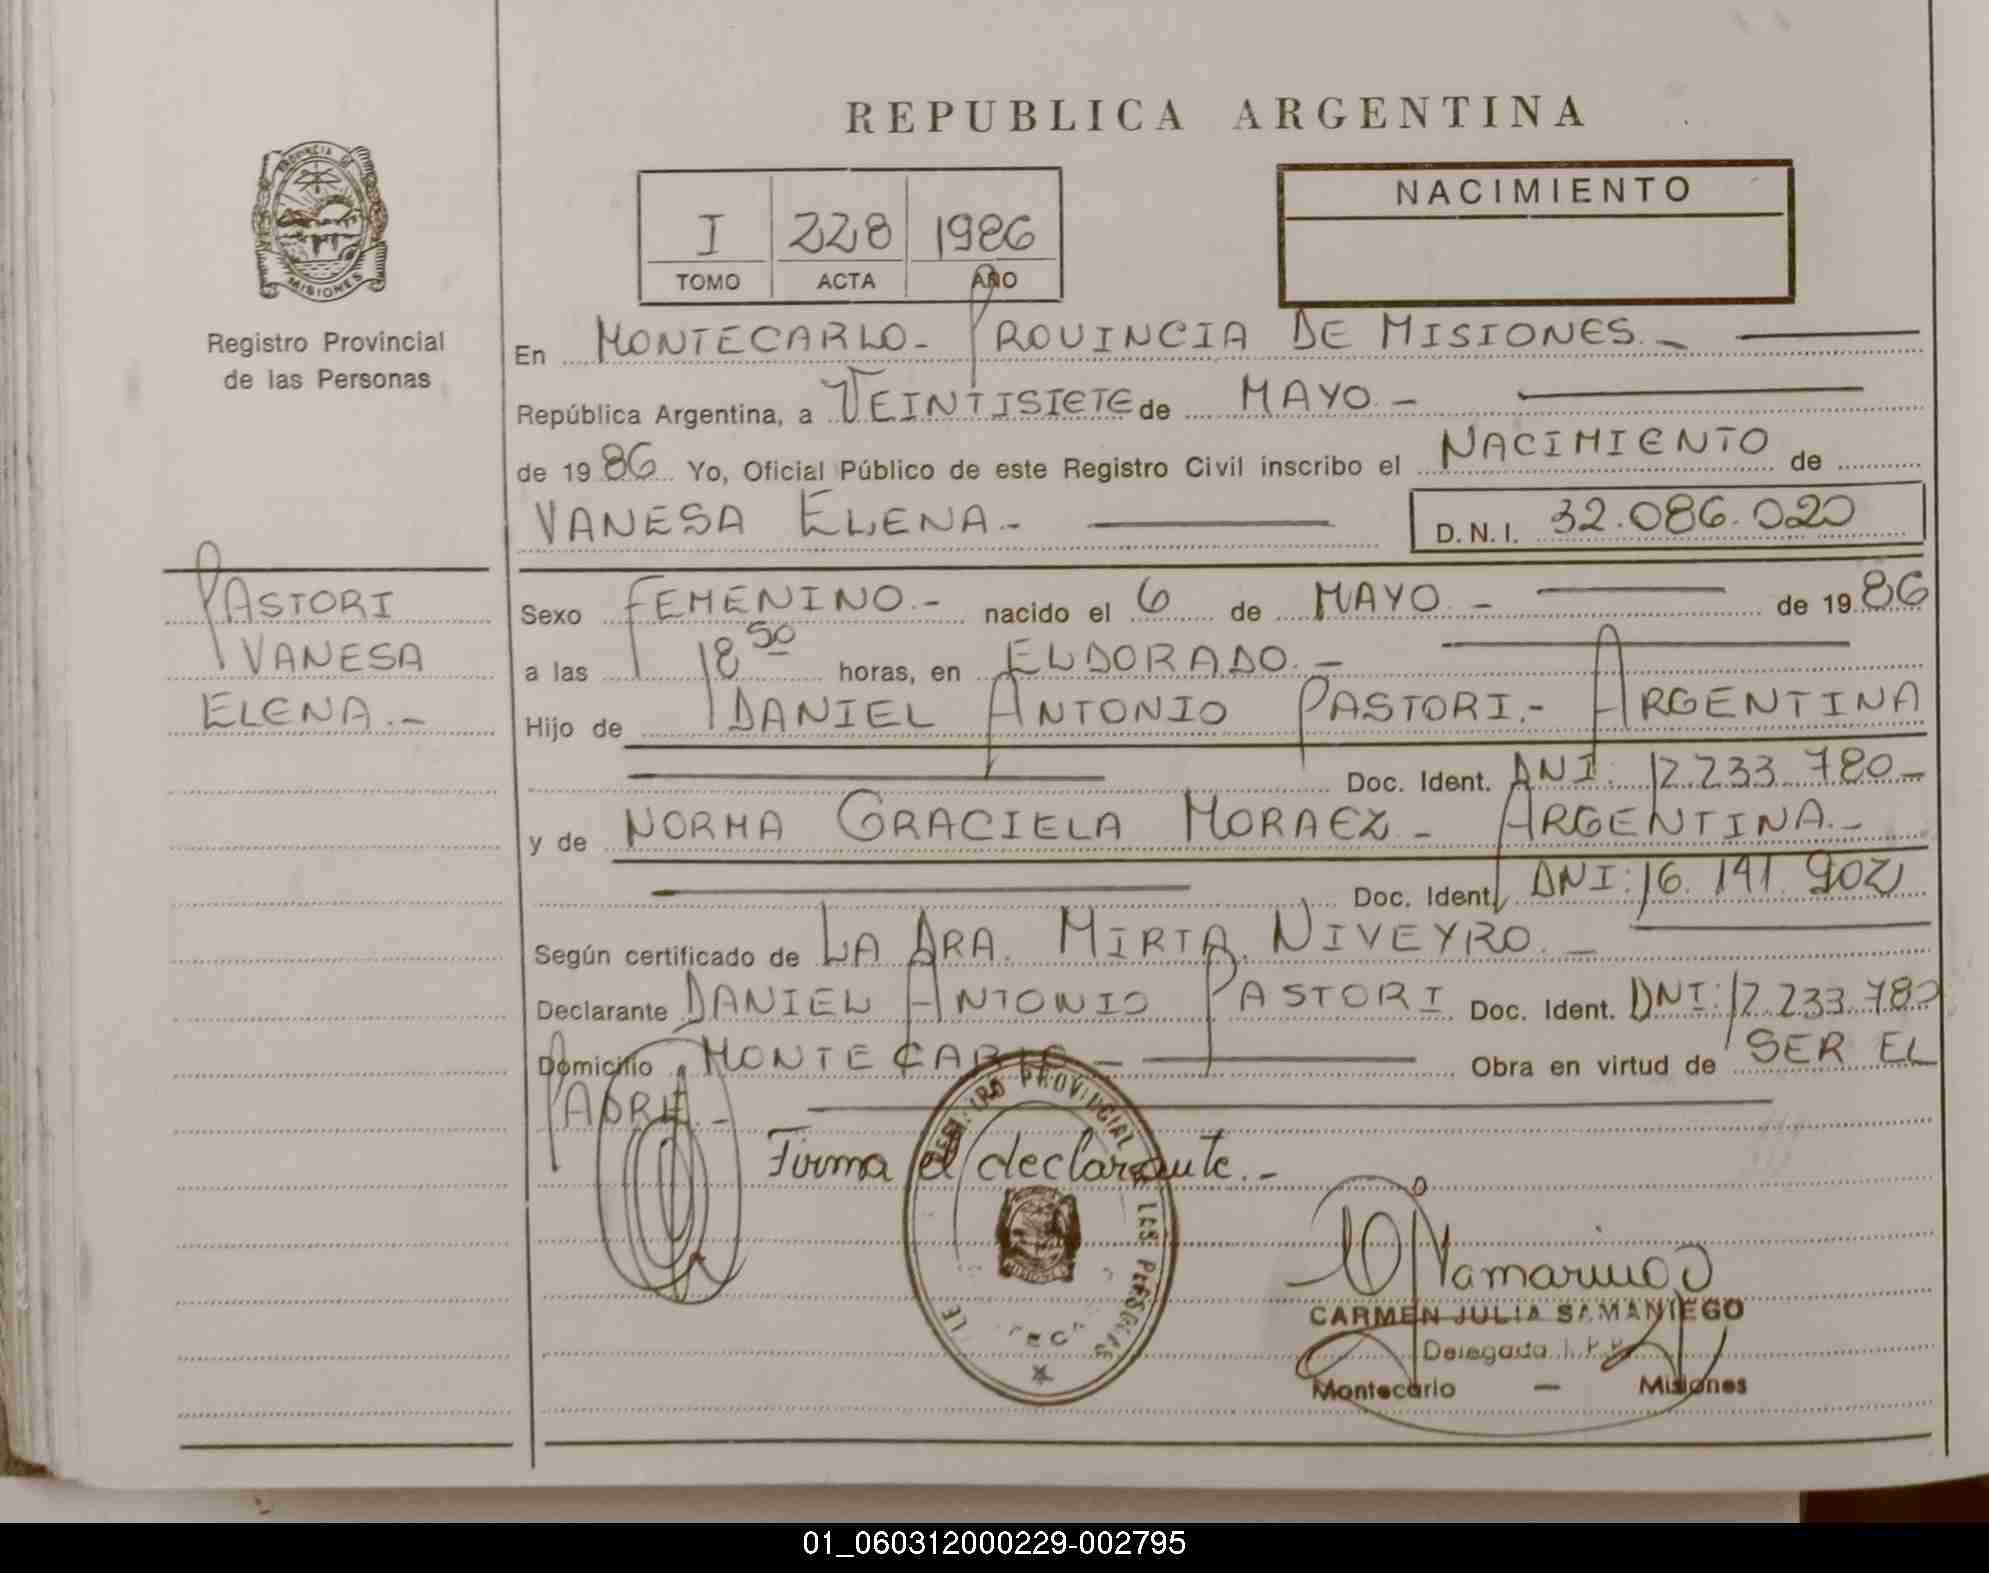 REPUBLICA ARGENTINA
PROVINCIA DE
MISIONES
Registro Provincial
de las Personas
NACIMIENTO
I 228 1986
TOMO ACTA AÑO
En MONTECARLO - PROVINCIA DE MISIONES. -
República Argentina, a VEINTISIETE de MAYO. -
de 1986 Yo, Oficial Público de este Registro Civil inscribo el NACIMIENTO de
VANESA ELENA. - D.N.I. 32.086.020
PASTORI
VANESA
ELENA. -
Sexo FEMENINO. - nacido el 6 de MAYO. - de 1986
a las 18 50 horas, en ELDORADO. -
Hijo de DANIEL ANTONIO PASTORI. - ARGENTINA
Doc. Ident. DNI: 12.233.780 -
y de NORMA GRACIELA MORAEZ - ARGENTINA. -
Doc. Ident. DNI: 16.141.902
Según certificado de LA DRA. MIRTA NIVEYRO. -
Declarante DANIEL ANTONIO PASTORI Doc. Ident. DNI: 12.233.780
Domicilio MONTECARLO - Obra en virtud de SER EL
PADRE. -
Firma el declarante. -
REGISTRO PROVINCIAL DE LAS PERSONAS
CARMEN JULIA SAMANIEGO
Delegada
Montecarlo — Misiones
01_060312000229-002795